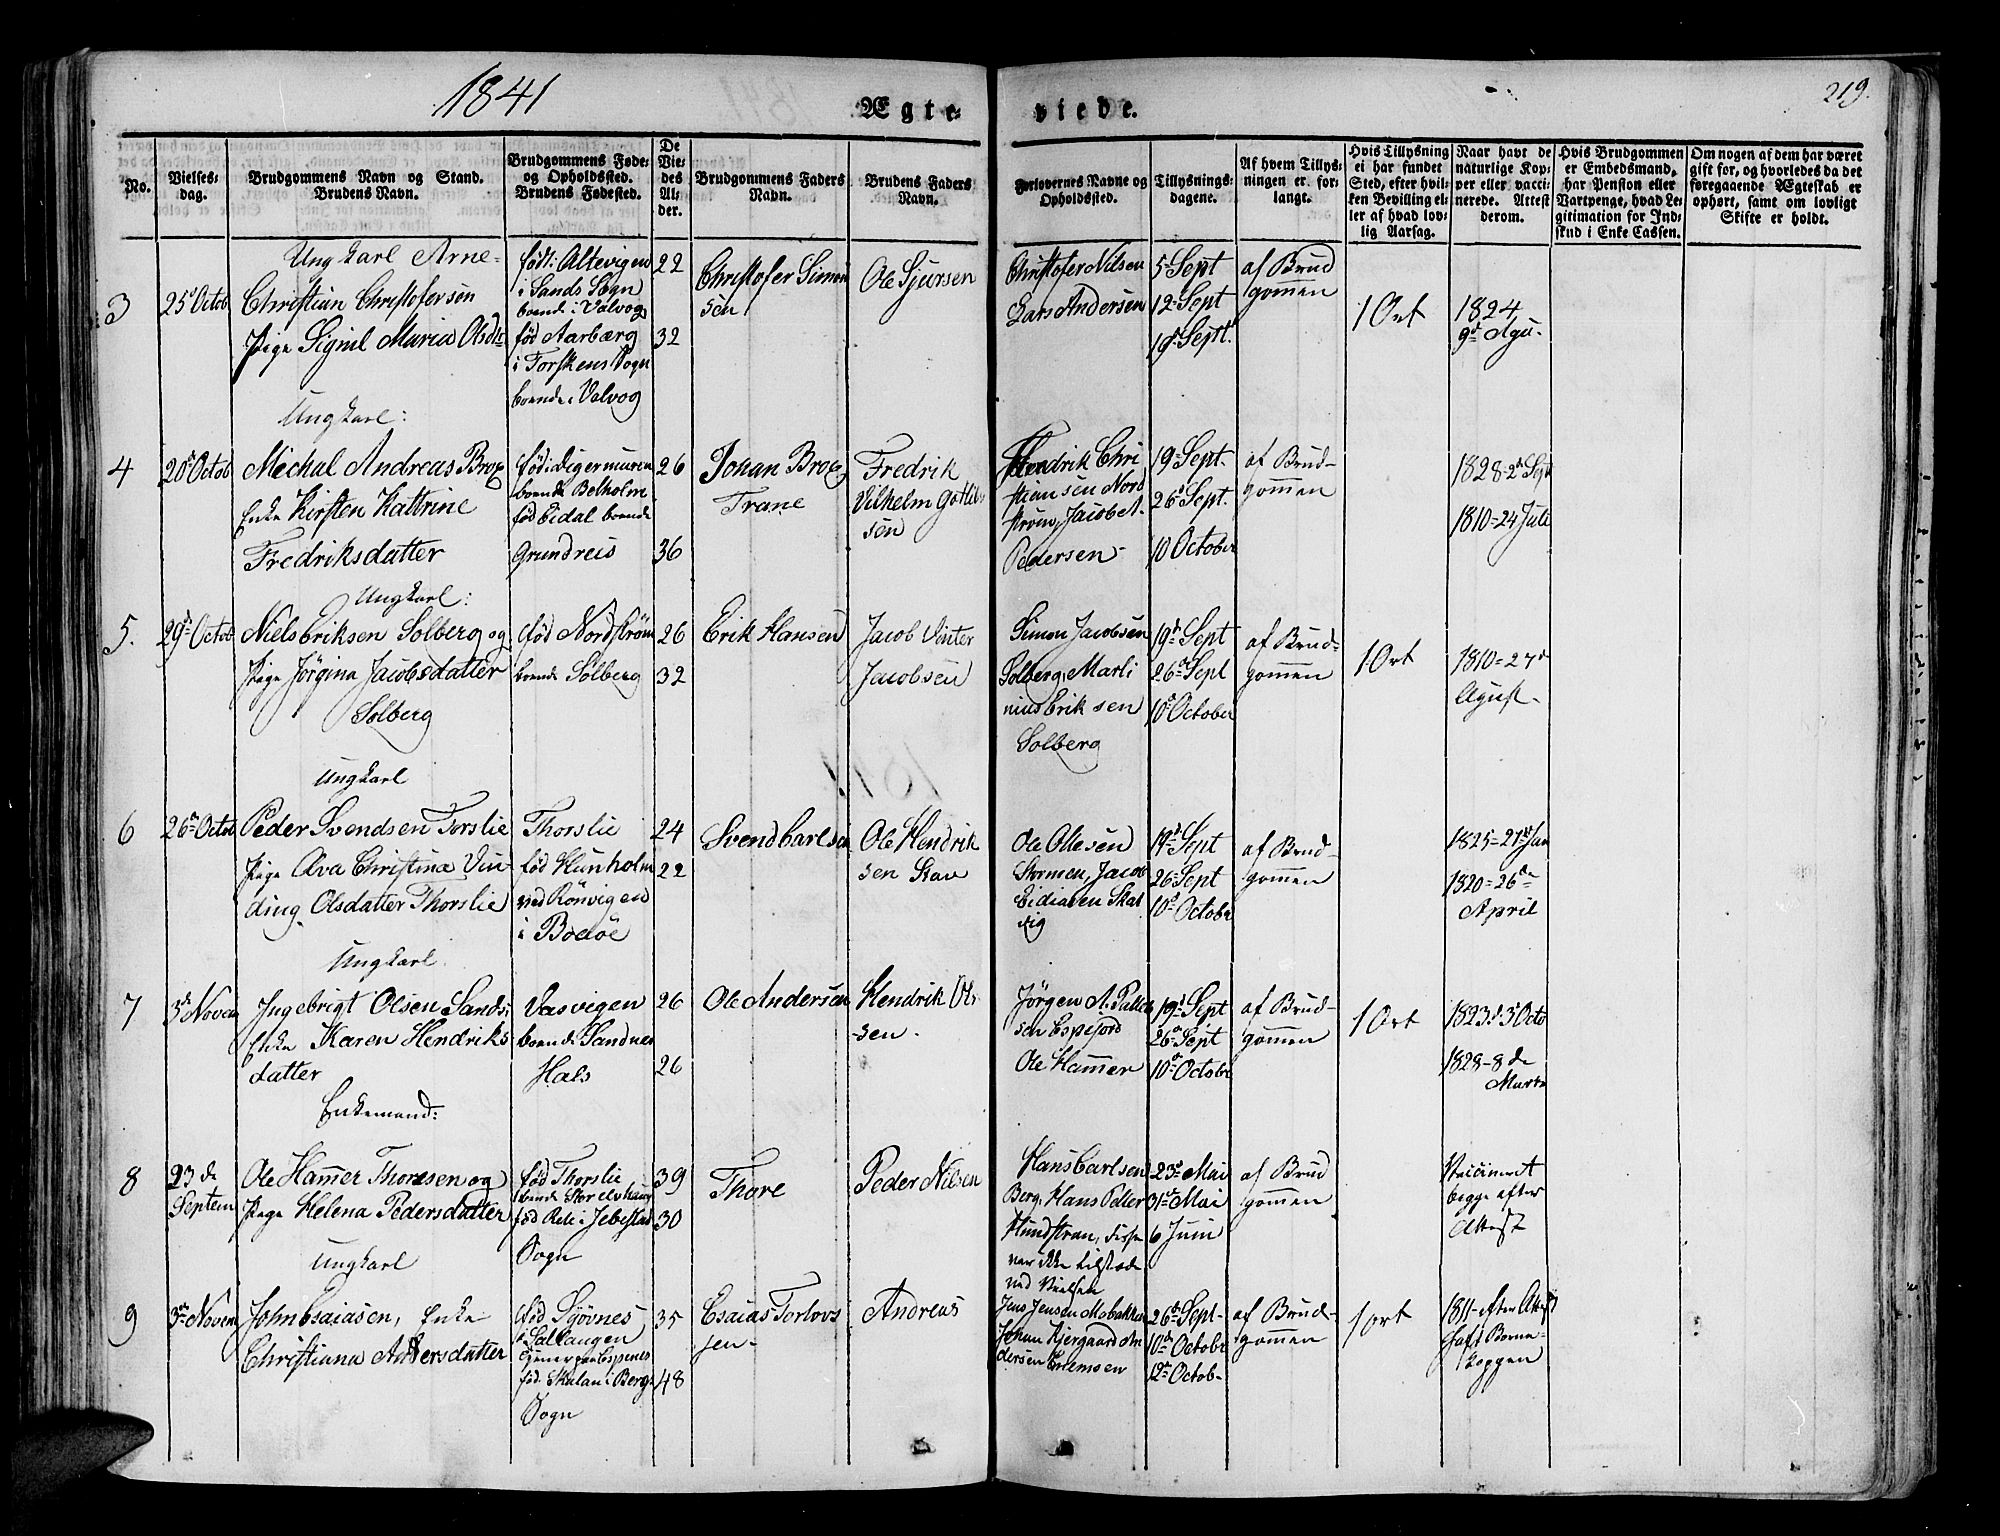 1841
Ægte-
viede.
219.
No.
Vielses-
dag.
Brudgommens Navn og Stand.
Brudens Navn.
Brudgommens Føde-
og Opholdssted.
Brudens Fødested.
De
Vie-
des
Al-
der.
Brudgommens Faders
Navn.
Brudens Faders
Navn.
Forlovernes Navne og
Opholdssted.
Tillysnings-
dagene.
Af hvem Tillys-
ningen er for-
langt.
Hvis Tillysning
ei har fundet
Sted, efter hvil-
ken Bevilling el-
ler af hvad lov-
lig Aarsag.
Naar havt de
naturlige Kop-
per eller vacci-
nerede. Attest
derom.
Hvis Brudgommen
er Embedsmand,
har Pension eller
Vartpenge, hvad Le-
gitimation for Ind-
skud i Enke Cassen.
Om nogen af dem har været
gift for, og hvorledes da det
foregaaende Ægteskab er
ophørt, samt om lovligt
Skifte er holdt.
3
25d Octob
Ungkarl Arne-
Christian Christofersen
Pige Signil Maria Olsdtr
født: Altevigen
i Sands Sogn
boende i Valvog
fød Aarbærg
i Torskens Sogn
boende i Valvog
22
32
Christofer Simon
sen
Ole Sjursen
Christofer Nilsen
Lars Andersen
5 Sept
12 Sept
19d Sept.
af Brud
gommen
1 Ort
1824
9d Agu-
Ungkarl:
4
20d Octob
Michal Andreas Brox
Enke Kirsten Kattrine
Fredriksdatter
fød i Digermuren
boende Belholm
fød Eidal boende
Grundreis
26
36
Johan Brox
Trane
Fredrik
Vilhelm Gotlib
sen
Hendrik Chri
stiansen Nord
strøm, Jacob A.
Pedersen
19 Sept.
26d Sept.
10 October
af Brud-
gommen
1828-2d Sept
1810=24 Juli
Ungkarl:
5.
29d Octob
Niels Eriksen Solberg og
Pige Jörgina Jacobsdatter
Solberg
fød Nordström
boende Solberg
26
32
Erik Hansen
Jacob Vinter
Jacobsen
Simon Jacobsen
Solberg, Marli
nius Erik sen
Solberg
19d Sept
26d Sept
10d October
af Brud-
gommen
1 Ort
1810=27d
Agust-
Ungkarl
6
26d Octob
Peder Svendsen Torslie
Pige Ava Christina Vin
ding Olsdatter Thorslie
Thorslie
fød Hunholm
ved Rönvigen
i Bodöe
24
22
Svend Carlsen
Ole Hendrik
sen Stav
Ole Olesen
Stormen, Jacob
19d Sept
26 Sept
10d October
af Brud-
gommen
1825=21d Jan
1820=26de
April
Ungkarl
7
3d Novem
Ingebrigt Olsen Sands:
Enke Karen Hendriks
datter
Vasvigen
boende Sandnes
Hals
26
26
Ole Andersen
Hendrik Ol
sen.
Jörgen A. Palle
sen Espefjord
Ole Hammer
19d Sept
26d Sept
10d October
af Brud-
gommen
1 Ort
1823d. 3d Octo
1828-8de
Marts
Enkemand:
8
23de
Septem
Ole Hammer Thoresen og
Pige Helena Pedersdatter
fød Thorslie
fød Rele i Jebestad
Sogn
39
30
Thore
Peder Nilsen
Hans Carlsen
Berg, Hans Peller
Hundstran, disse
var ikke tilstede
ved Vielsen
23d Mai
31d Mai
6 Juni
af Brud
gommen
Vaccineret
begge efter
Attest
Ungkarl
9
3d Novem
John Esaiasen, Enke
Christiana Andersdatter
fød Sjövnes
i Sallangen
tjener paa Espenes
fød. Skalan i Berg.
Sogn
35
48
Esaias Torlovs
sen-
Andreas
Jens Jensen Mobakken
Johan Kjergaard An
dersen Elnemsen
26d Sept-
10d October
12d Octob-
af Brud-
gommen
1 ort
1811-efter Attest
haft Borne-
koppen